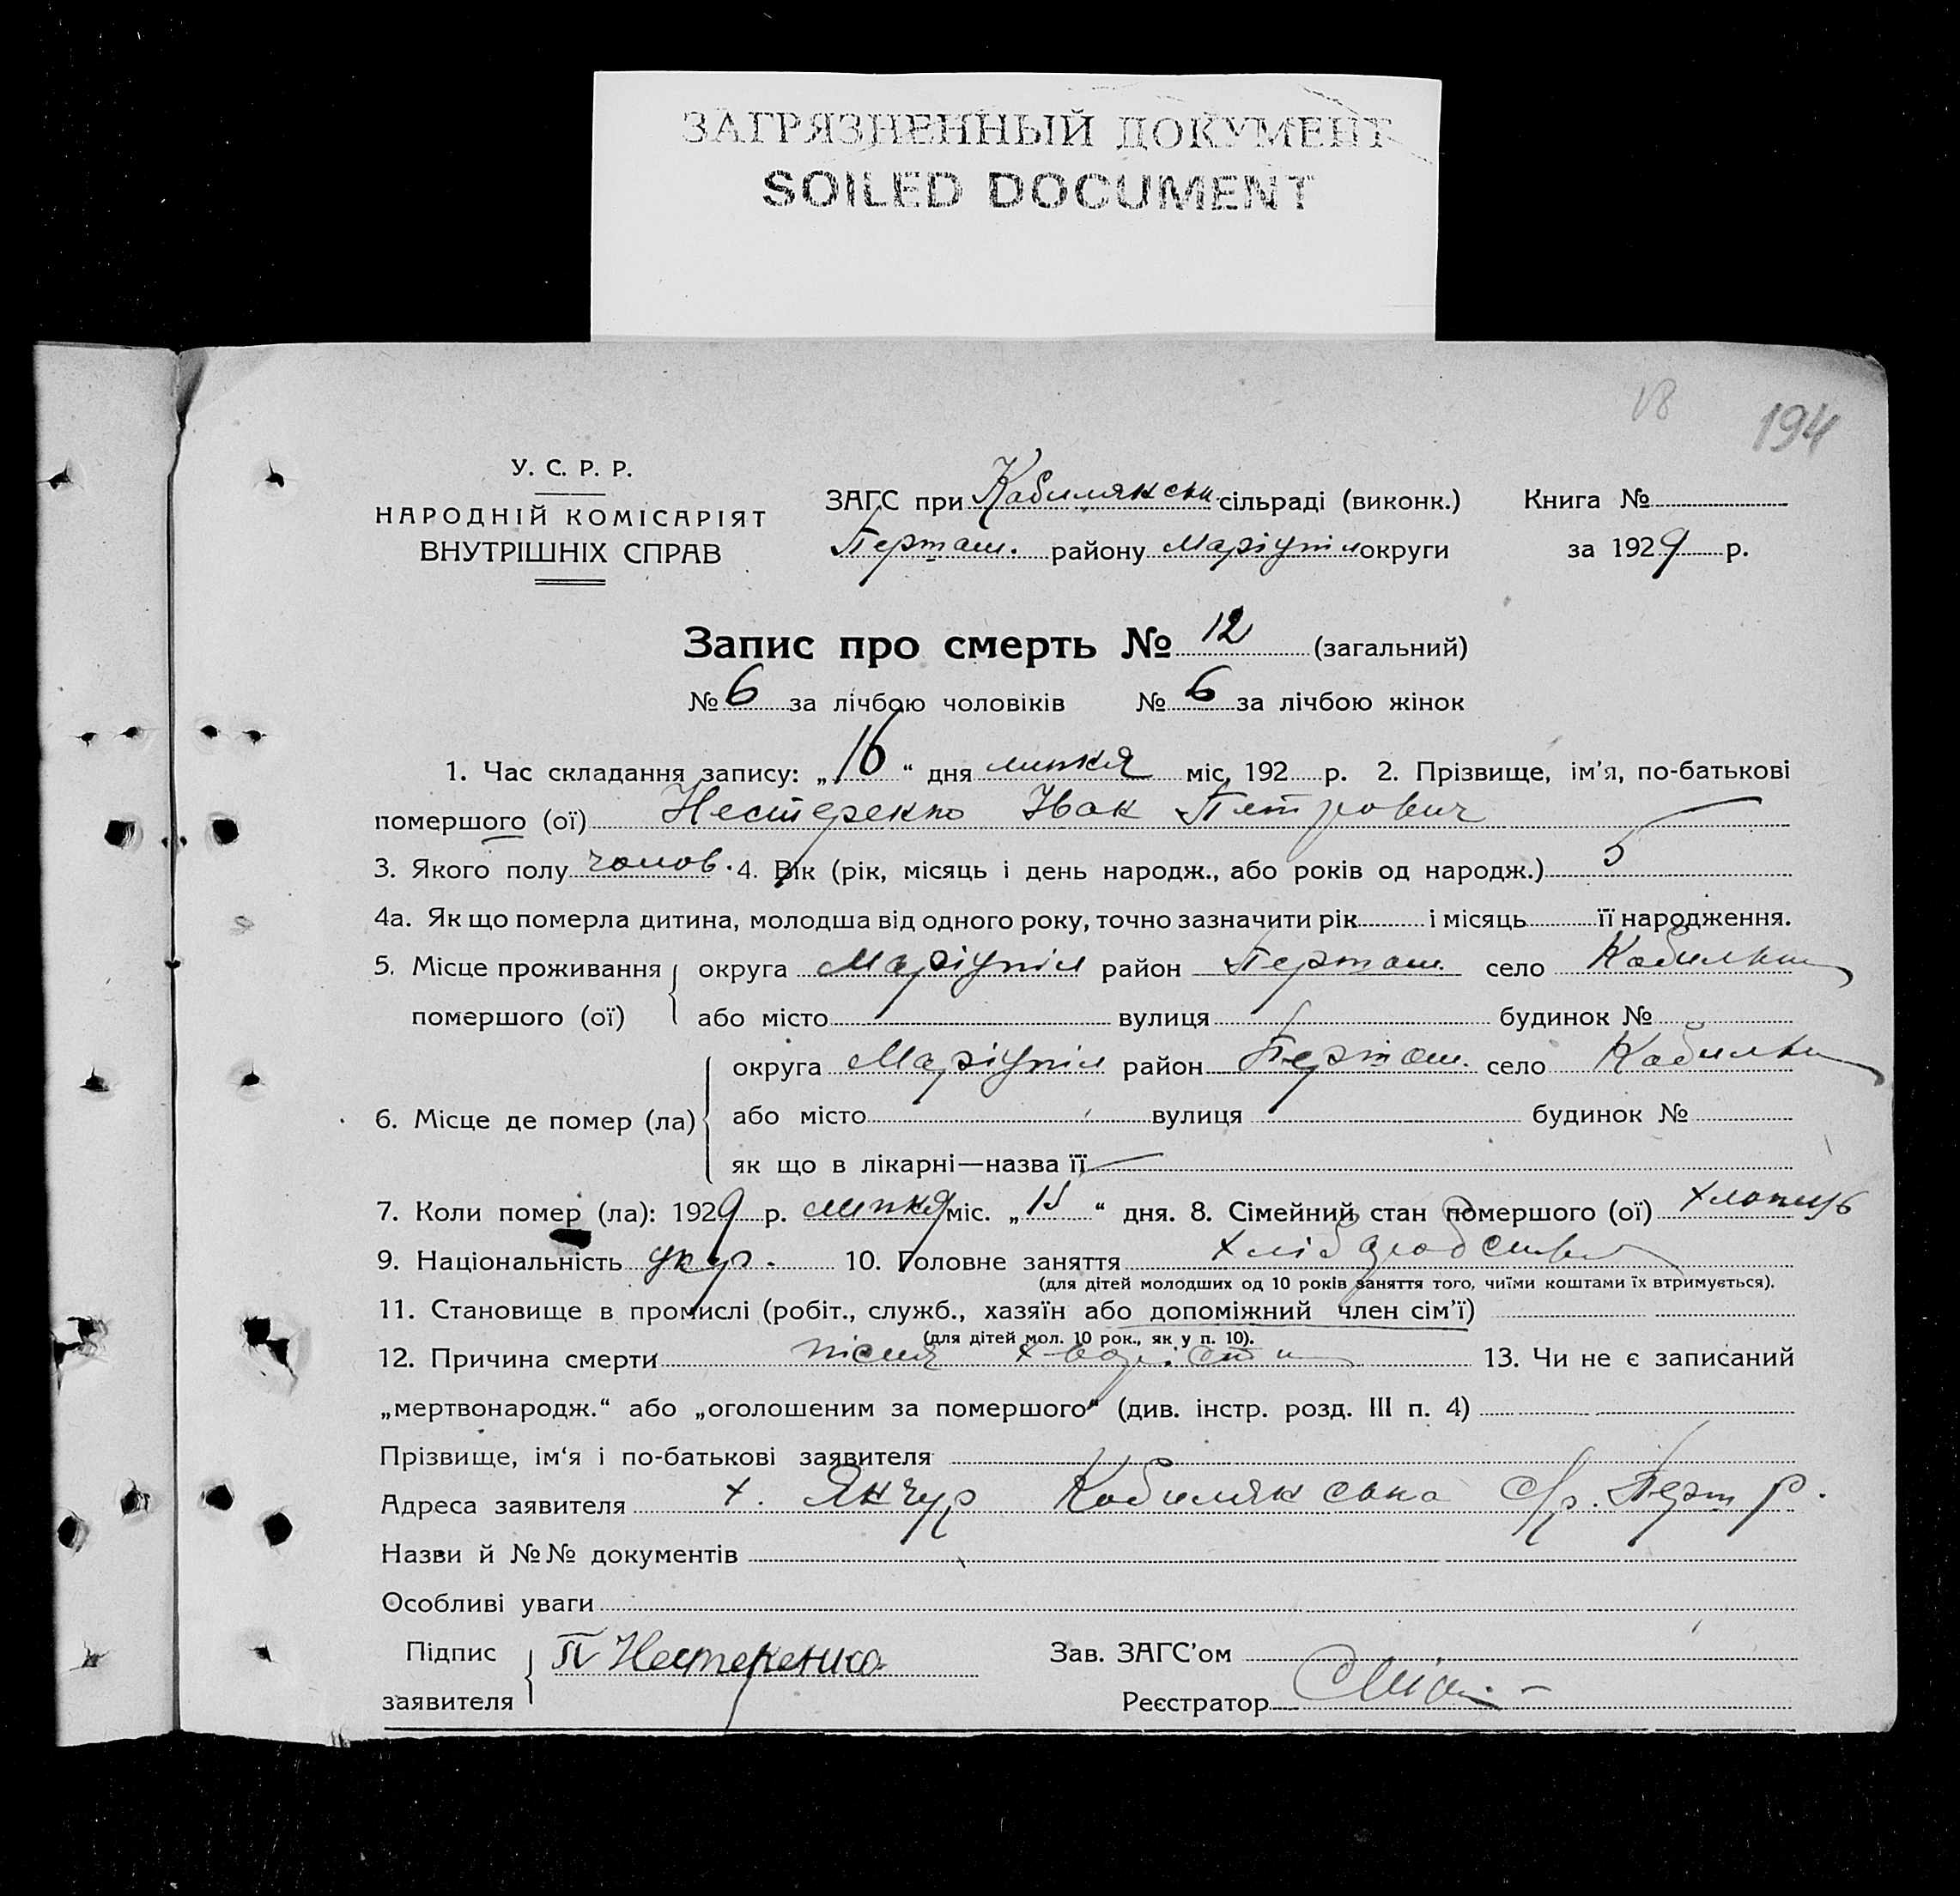 ЗАГРЯЗНЕННЫЙ ДОКУМЕНТ
SOILED DOCUMENT
18 194
У. С. Р. Р.
НАРОДНІЙ КОМІСАРІЯТ
ВНУТРІШНІХ СПРАВ
ЗАГС при Кабилякськ. сільраді (виконк.)
Першот. району Маріупіл округи
Книга №
за 1929 р.
Запис про смерть № 12 (загальний)
№ 6 за лічбою чоловіків № 6 за лічбою жінок
1. Час складання запису: „16“ дня липня міс. 192 р. 2. Прізвище, ім’я, по-батькові
помершого (ої) Нестеренко Іван Петрович
3. Якого полу чолов. 4. Вік (рік, місяць і день народж., або років од народж.) 5
4а. Як що померла дитина, молодша від одного року, точно зазначити рік і місяць її народження.
5. Місце проживання округа Маріупіл район село
помершого (ої) або місто вулиця будинок №
6. Місце де помер (ла) округа Маріупіл район село
або місто вулиця будинок №
як що в лікарні—назва її
7. Коли помер (ла): 1929 р. липня міс. „15“ дня. 8. Сімейний стан помершого (ої) хлопець
9. Національність укр. 10. Головне заняття
(для дітей молодших од 10 років заняття того, чиїми коштами їх втримується).
11. Становище в промислі (робіт., служб., хазяїн або допоміжний член сім’ї)
(для дітей мол. 10 рок., як у п. 10).
12. Причина смерти після 13. Чи не є записаний
„мертвонародж.“ або „оголошеним за помершого“ (див. інстр. розд. III п. 4)
Прізвище, ім‘я і по-батькові заявителя
Адреса заявителя х. Якчур
Назви й №№ документів
Особливі уваги
Підпис заявителя П Нестеренко
Зав. ЗАГС’ом
Реєстратор